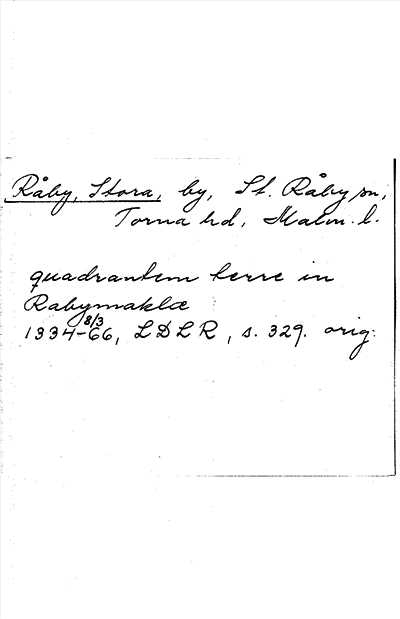 Råby, Stora, by, St. Råby sn,
Torna hd, Malm. l.
quadrantem terre in
Rabymaklæ
1334-8/3 66, LDLR, s. 329. orig.